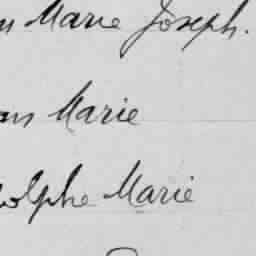 Marie Joseph.
Marie
olphe Marie